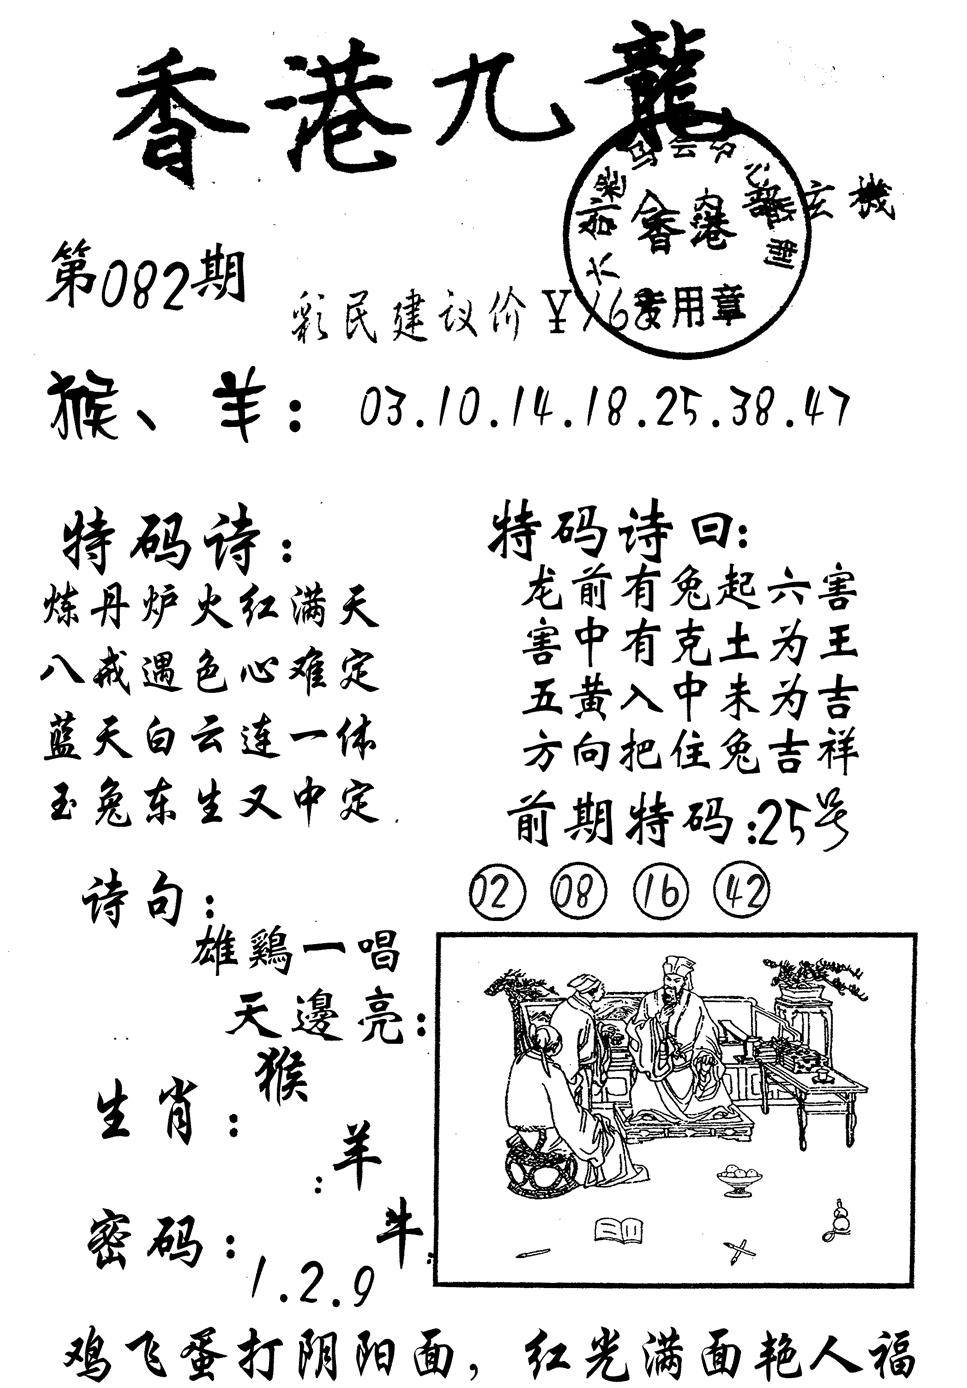 香港九龍
玄機
香港
专用章
第082期
彩民建议价￥168
猴、羊：03.10.14.18.25.38.47
特码诗：
炼丹炉火红满天
八戒遇色心难定
蓝天白云连一体
玉兔东生又中定
特码诗曰：
龙前有兔起六害
害中有克土为王
五黄入中未为吉
方向把住兔吉祥
前期特码：25号
02 08 16 42
诗句：
雄鷄一唱
天邊亮：
生肖：猴
：羊
牛：
密码：
1.2.9
鸡飞蛋打阴阳面，红光满面艳人福